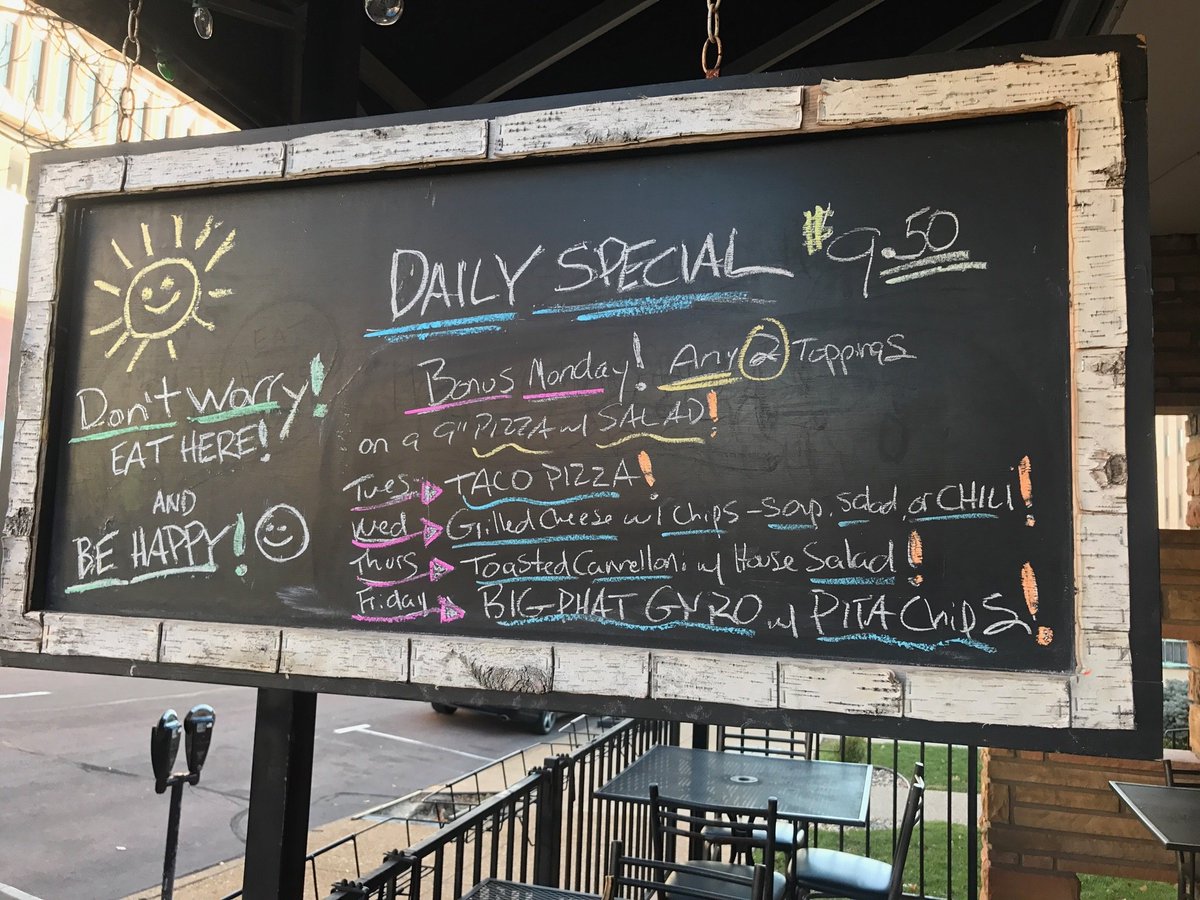 DAILY SPECIAL $9.50
Don't Worry!
EAT HERE!
AND
BE HAPPY!
Bonus Monday! Any 2 Toppings
on a 9" PIZZA w/ SALAD!
Tues TACO PIZZA!
Wed Grilled Cheese w/ Chips - Soup, Salad, or CHILI!
Thurs Toasted Cannelloni w/ House Salad!
Friday BIG PHAT GYRO w/ PITA Chips!